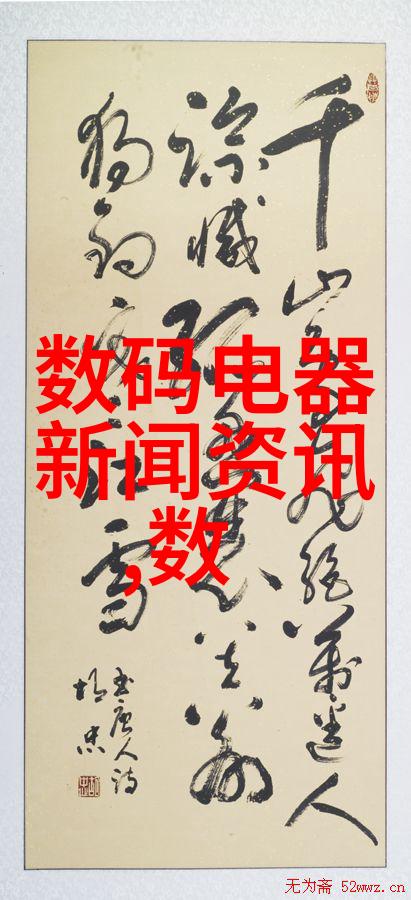 千山鸟飞绝万迳人
踪灭孤舟蓑笠翁
独钓寒江雪
书唐人诗
数码电器
新闻资讯
,数
无为斋 52wwz.cn